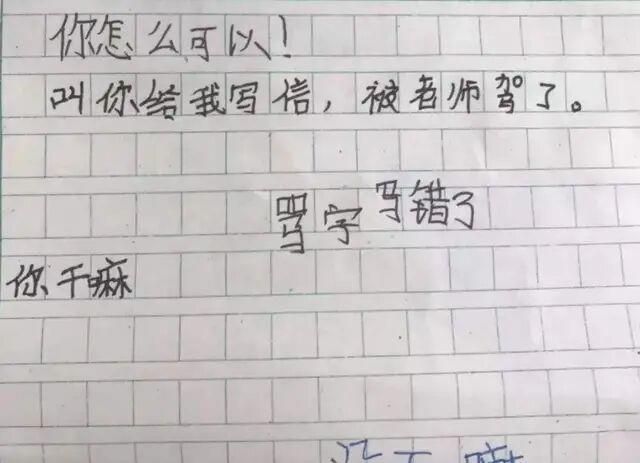 你怎么可以！
叫你给我写信，被老师驾了。
骂字写错了
你干嘛